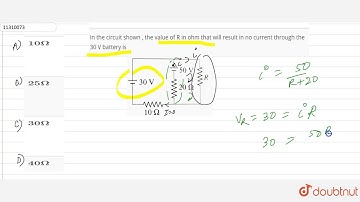 11310073
In the circuit shown , the value of R in ohm that will result in no current through the
30 V battery is
A) 10Ω
B) 25Ω
C) 30Ω
D) 40Ω
30 V
50 V
20 Ω
R
10 Ω
I=0
i
i = 50 / R+20
V_R = 30 = iR
30 = 50R
doubtnut